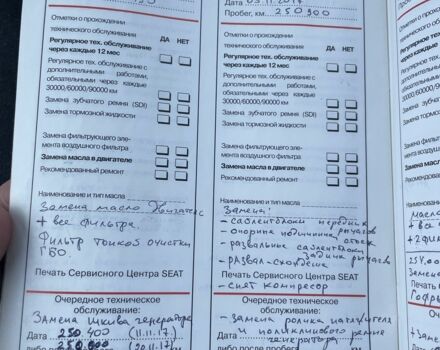 Отметки о прохождении
технического обслуживания ДА НЕТ
Регулярное тех. обслуживание
через каждые 12 мес
Регулярное тех. обслуживание с
дополнительными работами,
обязательными через каждые
30000/60000/90000 км
Замена зубчатого ремня (SDI)
Замена тормозной жидкости
Замена фильтрующего эле-
мента воздушного фильтра
Замена масла в двигателе
Рекомендованный ремонт
Наименование и тип масла
Замена масло
+ все фильтра.
Фильтр тонкой очистки
ГБО.
Печать Сервисного Центра SEAT
Очередное техническое
обслуживание:
Замена шкива генератора
Дата 250 400 (11.11.17)
Дата 05.11.2017
Пробег, км 250 300
Отметки о прохождении
технического обслуживания ДА НЕТ
Регулярное тех. обслуживание
через каждые 12 мес
Регулярное тех. обслуживание с
дополнительными работами,
обязательными через каждые
30000/60000/90000 км
Замена зубчатого ремня (SDI)
Замена тормозной жидкости
Замена фильтрующего эле-
мента воздушного фильтра
Замена масла в двигателе
Рекомендованный ремонт
Наименование и тип масла
Замена:
- сайлентблоки передних
рычагов
- развальные сайлентблоки
задних рычагов
- развал-схождение
Печать Сервисного Центра SEAT
- снят компресор
Очередное техническое
обслуживание:
- замена ролика натяжителя
Дата и поликлинового ремня
генератора